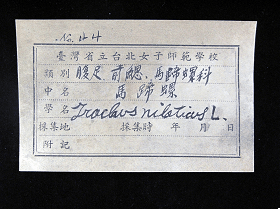 No. 44
臺灣省立台北女子師範學校
類別 腹足 前鰓. 馬蹄螺科
中名 馬蹄螺
學名 Trochus niloticus L.
採集地 採集時 年 月 日
附記